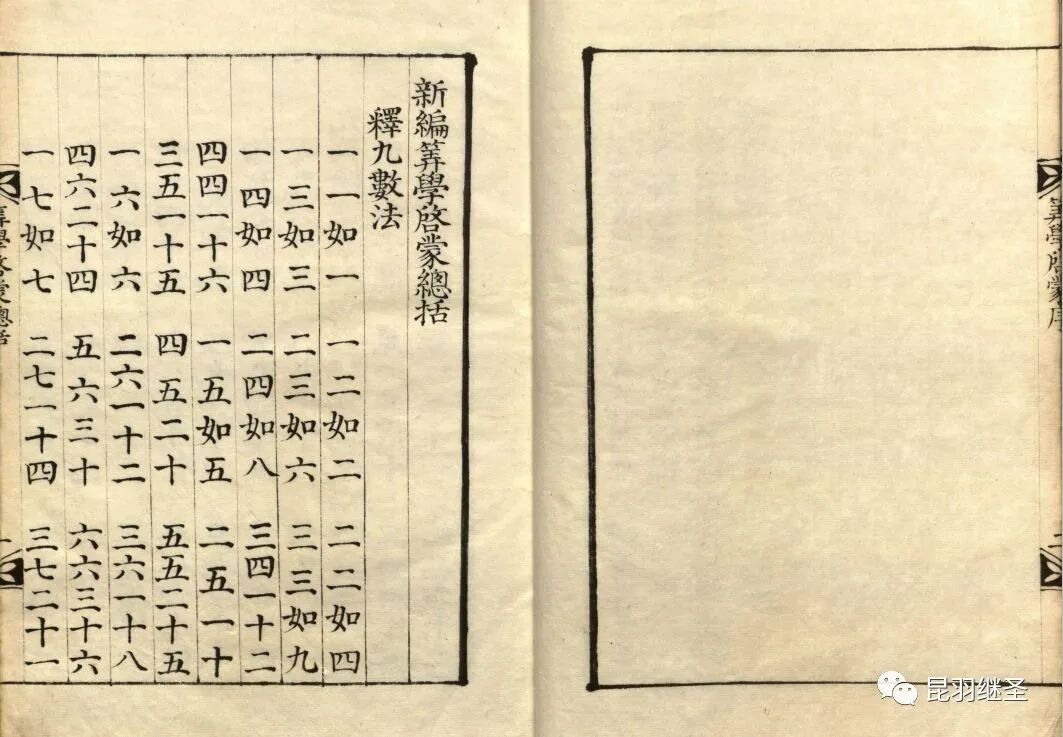 新編筭學啓蒙總括
釋九數法
一一如一 一二如二 二二如四
一三如三 二三如六 三三如九
一四如四 二四如八 三四一十二
四四一十六 一五如五 二五一十
三五一十五 四五二十 五五二十五
一六如六 二六一十二 三六一十八
四六二十四 五六三十 六六三十六
一七如七 二七一十四 三七二十一
筭學啓蒙總括
筭學啓蒙序
昆羽继圣